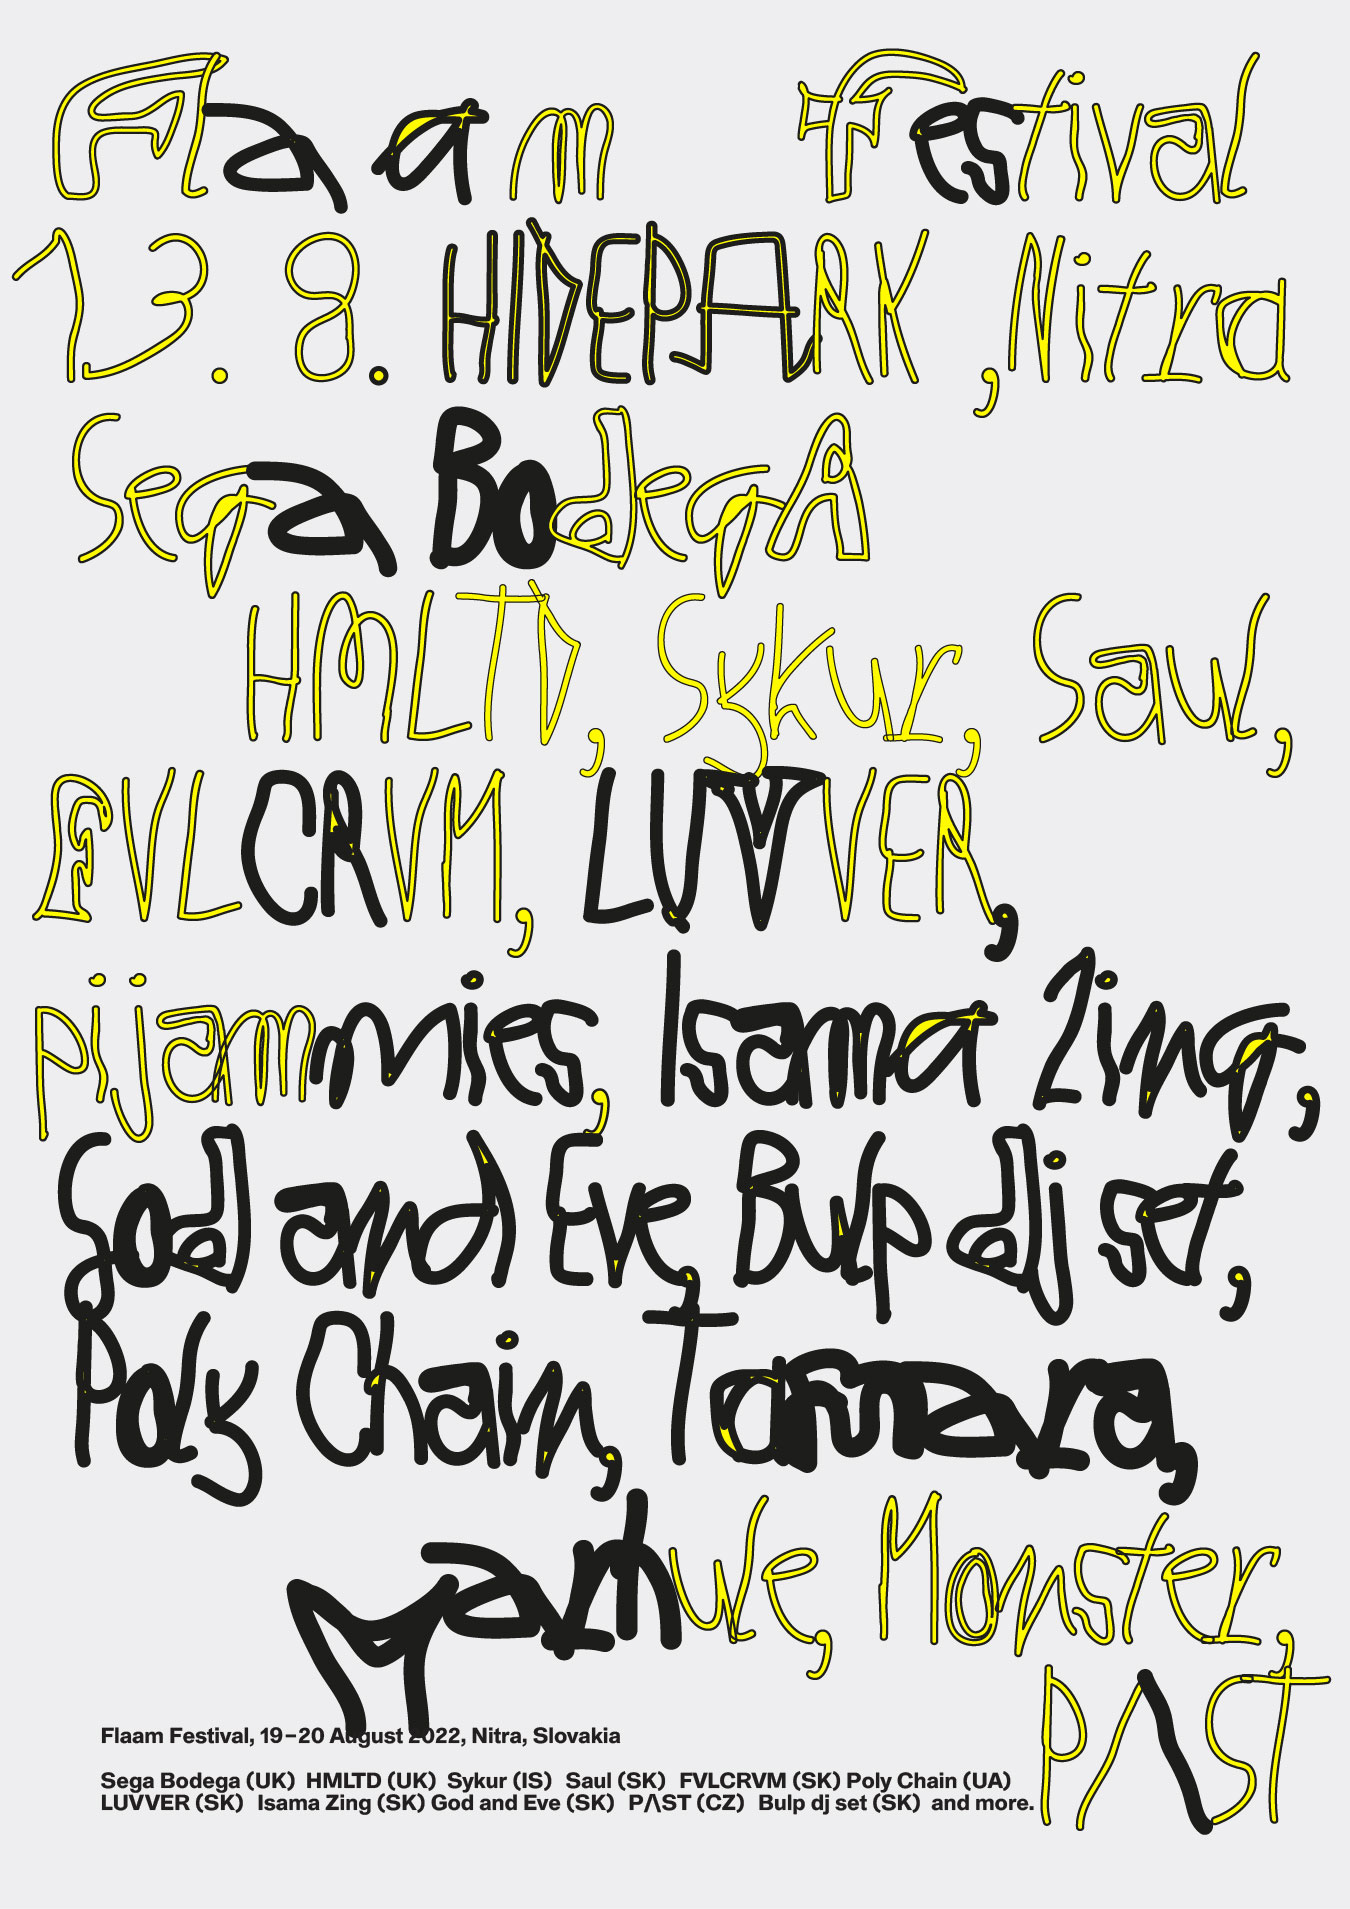 Flaam Festival
13. 8. HIDEPARK ,Nitra
Sega BodegA
HMLTD, Sykur, Saul,
FVLCRVM, LUVVER,
pijammies, Isama Zing,
God and Eve, Bulp dj set,
Poly Chain, Tamara,
Markule, Monster,
PΛST
Flaam Festival, 19–20 August 2022, Nitra, Slovakia
Sega Bodega (UK) HMLTD (UK) Sykur (IS) Saul (SK) FVLCRVM (SK) Poly Chain (UA)
LUVVER (SK) Isama Zing (SK) God and Eve (SK) PΛST (CZ) Bulp dj set (SK) and more.